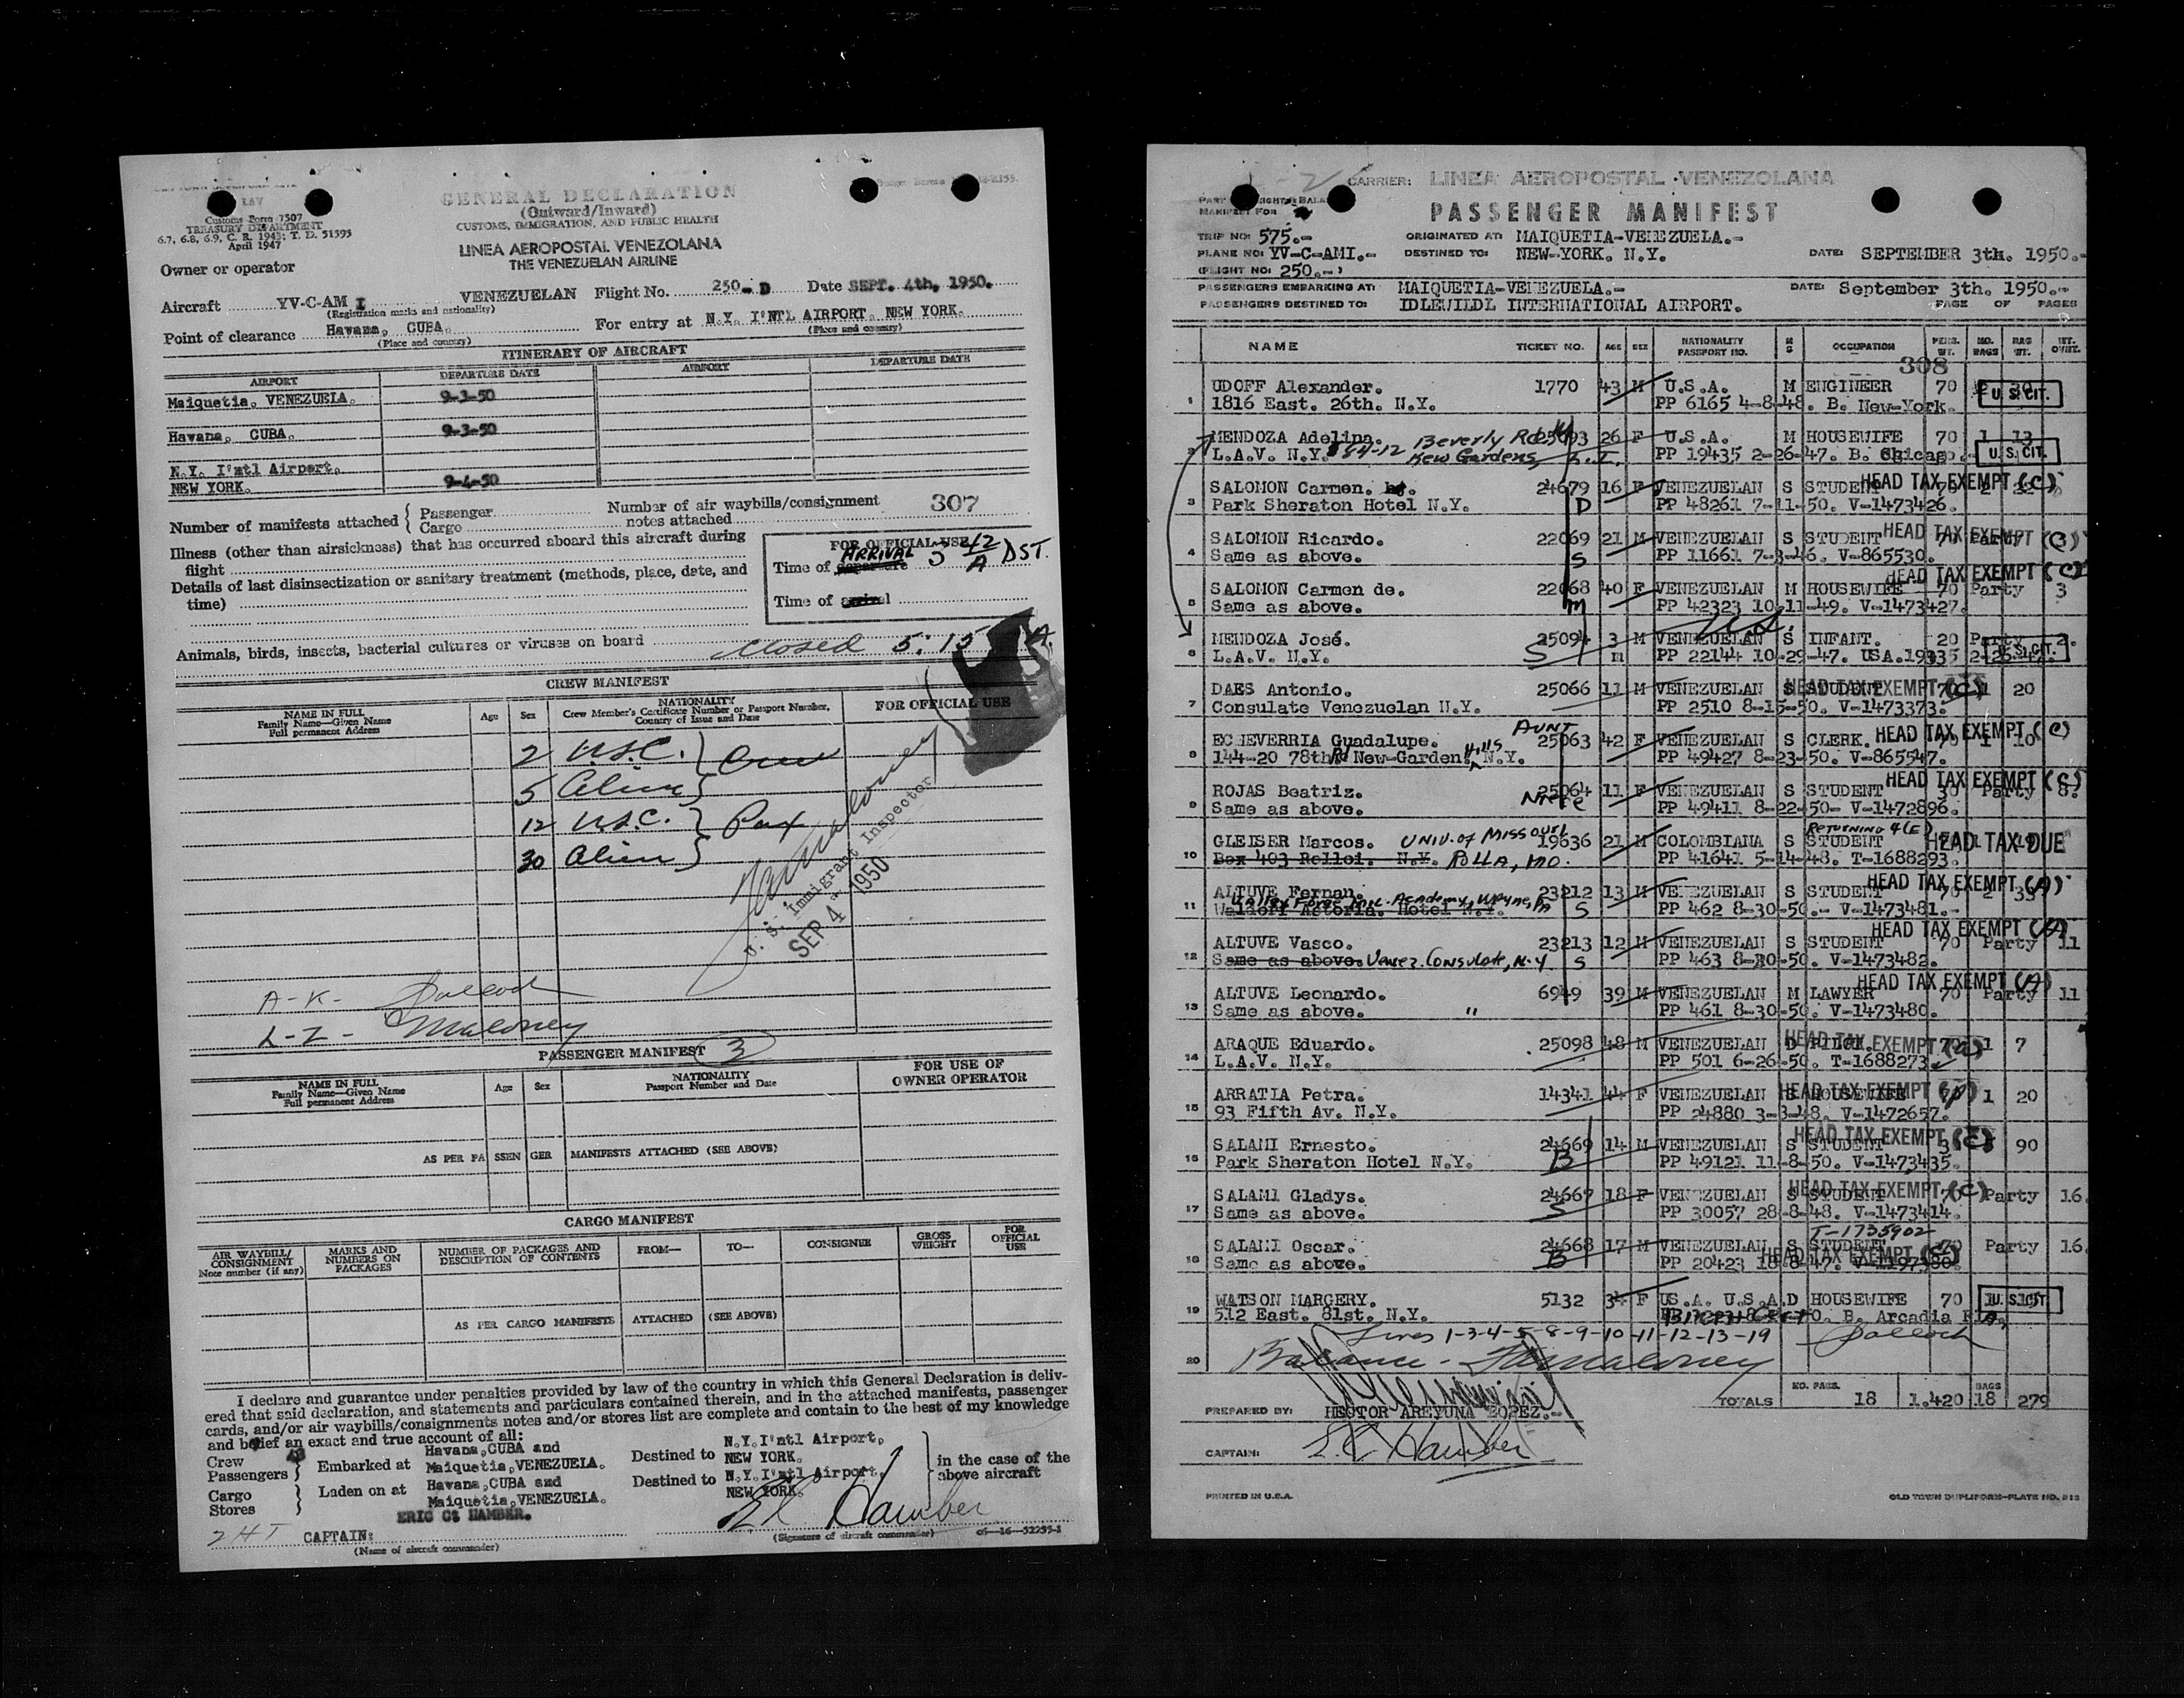 LAV
Customs Form 7507
TREASURY DEPARTMENT
6.7, 6.8, 6.9, C. R. 1943; T. D. 51593
April 1947
GENERAL DECLARATION
(Outward/Inward)
CUSTOMS, IMMIGRATION, AND PUBLIC HEALTH
LINEA AEROPOSTAL VENEZOLANA
THE VENEZUELAN AIRLINE
Owner or operator
Aircraft YV-C-AM I VENEZUELAN Flight No. 250-D Date SEPT. 4th, 1950.
(Registration marks and nationality)
Point of clearance Havana, CUBA. For entry at N.Y. I'NTL AIRPORT. NEW YORK.
(Place and country) (Place and country)
ITINERARY OF AIRCRAFT
AIRPORT DEPARTURE DATE AIRPORT DEPARTURE DATE
Maiquetia, VENEZUELA. 9-3-50
Havana, CUBA. 9-3-50
N.Y. I'ntl Airport.
NEW YORK. 9-4-50
Number of manifests attached { Passenger Number of air waybills/consignment 307
Cargo notes attached
Illness (other than airsickness) that has occurred aboard this aircraft during
flight
Details of last disinsectization or sanitary treatment (methods, place, date, and
time)
FOR OFFICIAL USE
ARRIVAL
Time of departure 3 42 A DST.
Time of arrival
Animals, birds, insects, bacterial cultures or viruses on board
Closed 5:15 A
CREW MANIFEST
NAME IN FULL
Family Name—Given Name
Full permanent Address
Age Sex
NATIONALITY
Crew Member's Certificate Number or Passport Number,
Country of Issue and Date
FOR OFFICIAL USE
2 U.S.C. } Crew
5 Alien }
12 U.S.C. } Pax
30 Alien }
U. S. Immigrant Inspector
SEP 4 1950
A-K- Pollock
L-Z- Maloney
PASSENGER MANIFEST 3
NAME IN FULL
Family Name—Given Name
Full permanent Address
Age Sex
NATIONALITY
Passport Number and Date
FOR USE OF
OWNER OPERATOR
AS PER PASSENGER MANIFESTS ATTACHED (SEE ABOVE)
CARGO MANIFEST
AIR WAYBILL/
CONSIGNMENT
Note number (if any)
MARKS AND
NUMBERS ON
PACKAGES
NUMBER OF PACKAGES AND
DESCRIPTION OF CONTENTS
FROM— TO— CONSIGNEE
GROSS
WEIGHT
FOR
OFFICIAL
USE
AS PER CARGO MANIFESTS ATTACHED (SEE ABOVE)
I declare and guarantee under penalties provided by law of the country in which this General Declaration is deliv-
ered that said declaration, and statements and particulars contained therein, and in the attached manifests, passenger
cards, and/or air waybills/consignments notes and/or stores list are complete and contain to the best of my knowledge
and belief an exact and true account of all:
Crew
Passengers } Embarked at Havana,CUBA and
Maiquetia,VENEZUELA. Destined to N.Y.I'ntl Airport,
NEW YORK.
Cargo
Stores } Laden on at Havana,CUBA and
Maiquetia,VENEZUELA. Destined to N.Y.I'ntl Airport,
NEW YORK.
in the case of the
above aircraft
ERIC C. HAMBER.
2 HT CAPTAIN:
(Name of aircraft commander)
E C Hamber
(Signature of aircraft commander) 16—52255-1
CARRIER: LINEA AEROPOSTAL VENEZOLANA
PASSENGER MANIFEST
MANIFEST FOR
TRIP NO: 575.- ORIGINATED AT: MAIQUETIA-VENEZUELA.-
PLANE NO: YV-C-AMI.- DESTINED TO: NEW-YORK. N.Y. DATE: SEPTEMBER 3th. 1950.-
(FLIGHT NO: 250.-)
PASSENGERS EMBARKING AT: MAIQUETIA-VENEZUELA.- DATE: September 3th. 1950.-
PASSENGERS DESTINED TO: IDLEWILDL INTERNATIONAL AIRPORT. PAGE OF PAGES
NAME TICKET NO. AGE SEX NATIONALITY PASSPORT NO. M S OCCUPATION PERS. WT. NO. BAGS BAG WT.
308
1 UDOFF Alexander. 1770 43 M U.S.A. M ENGINEER 70 U. S. CIT.
1816 East. 26th. N.Y. PP 6165 4-8-48. B. New-York.
2 MENDOZA Adelina. 25093 26 F U.S.A. M HOUSEWIFE 70 1 13
L.A.V. N.Y. 84-12 Beverly Rd Kew Gardens, L.I. PP 19435 2-26-47. B. Chicago. U. S. CIT.
3 SALOMON Carmen. 24679 16 F VENEZUELAN S STUDENT HEAD TAX EXEMPT (C)
Park Sheraton Hotel N.Y. D PP 48261 7-11-50. V-1473426.
4 SALOMON Ricardo. 22069 21 M VENEZUELAN S STUDENT HEAD TAX EXEMPT (C)
Same as above. S PP 11661 7-3-46. V-865530.
5 SALOMON Carmen de. 22068 40 F VENEZUELAN M HOUSEWIFE 70 Party 3 HEAD TAX EXEMPT (C)
Same as above. M PP 42323 10-11-49. V-1473427.
6 MENDOZA José. 25094 3 M VENEZUELAN U.S. S INFANT. 20 Party 2.
L.A.V. N.Y. S PP 22144 10-29-47. USA.19335 U. S. CIT.
7 DAES Antonio. 25066 11 M VENEZUELAN S STUDENT HEAD TAX EXEMPT (C) 1 20
Consulate Venezuelan N.Y. PP 2510 8-15-50. V-1473373.
8 ECHEVERRIA Guadalupe. AUNT 25063 42 F VENEZUELAN S CLERK. HEAD TAX EXEMPT (C) 1 10
144-20 78th Rd New-Garden Hills N.Y. PP 49427 8-23-50. V-865547.
9 ROJAS Beatriz. 25064 11 F VENEZUELAN S STUDENT 30 Party 8. HEAD TAX EXEMPT (C)
Same as above. Niece PP 49411 8-22-50- V-1472896.
10 GLEISER Marcos. UNIV. OF MISSOURI 19636 21 M COLOMBIANA S STUDENT RETURNING 4(E) HEAD TAX DUE
Box 403 Rollei. N.Y. ROLLA, MO. PP 41641 5-14-48. T-1688293.
11 ALTUVE Fernan. 23212 13 M VENEZUELAN S STUDENT HEAD TAX EXEMPT (A) 70 2 33
Valley Forge Mil. Academy, Wayne, PA
Waldorf Astoria. Hotel N.Y. S PP 462 8-30-50.- V-1473481.-
12 ALTUVE Vasco. 23213 12 M VENEZUELAN S STUDENT 70 Party 11 HEAD TAX EXEMPT (A)
Same as above. Venez. Consulate, N.Y. S PP 463 8-30-50. V-1473482.
13 ALTUVE Leonardo. 6949 39 M VENEZUELAN M LAWYER 70 Party 11 HEAD TAX EXEMPT (A)
Same as above. " PP 461 8-30-50. V-1473480.
14 ARAQUE Eduardo. 25098 48 M VENEZUELAN HEAD TAX EXEMPT 70 1 7
L.A.V. N.Y. PP 501 6-26-50. T-1688273.
15 ARRATIA Petra. 14341 44 F VENEZUELAN S HOUSEWIFE HEAD TAX EXEMPT (A) 1 20
93 Fifth Av. N.Y. PP 24880 3-3-48. V-1472657.
16 SALAMI Ernesto. 24669 14 M VENEZUELAN S STUDENT HEAD TAX EXEMPT (C) 90
Park Sheraton Hotel N.Y. B PP 49121 11-8-50. V-1473435.
17 SALAMI Gladys. 24667 18 F VENEZUELAN S STUDENT HEAD TAX EXEMPT (C) 70 Party 16.
Same as above. S PP 30057 28-8-48. V-1473414.
T-1735902
18 SALAMI Oscar. 24668 17 M VENEZUELAN S STUDENT HEAD TAX EXEMPT (C) 70 Party 16.
Same as above. B PP 20423 18-8-47.
19 WATSON MARGERY. 5132 34 F US.A. U.S.A. D HOUSEWIFE 70 U. S. CIT.
512 East. 81st. N.Y. B. Arcadia Fla.
Lines 1-3-4-5-8-9-10-11-12-13-19 Pollock
20 Balance - Maloney
TOTALS NO. PASS. 18 1.420 BAGS 18 279
PREPARED BY: HECTOR AREYUNA LOPEZ.-
CAPTAIN: E. C. Hamber
PRINTED IN U.S.A. OLD TOWN DUPLIFORM-PLATE NO. 813